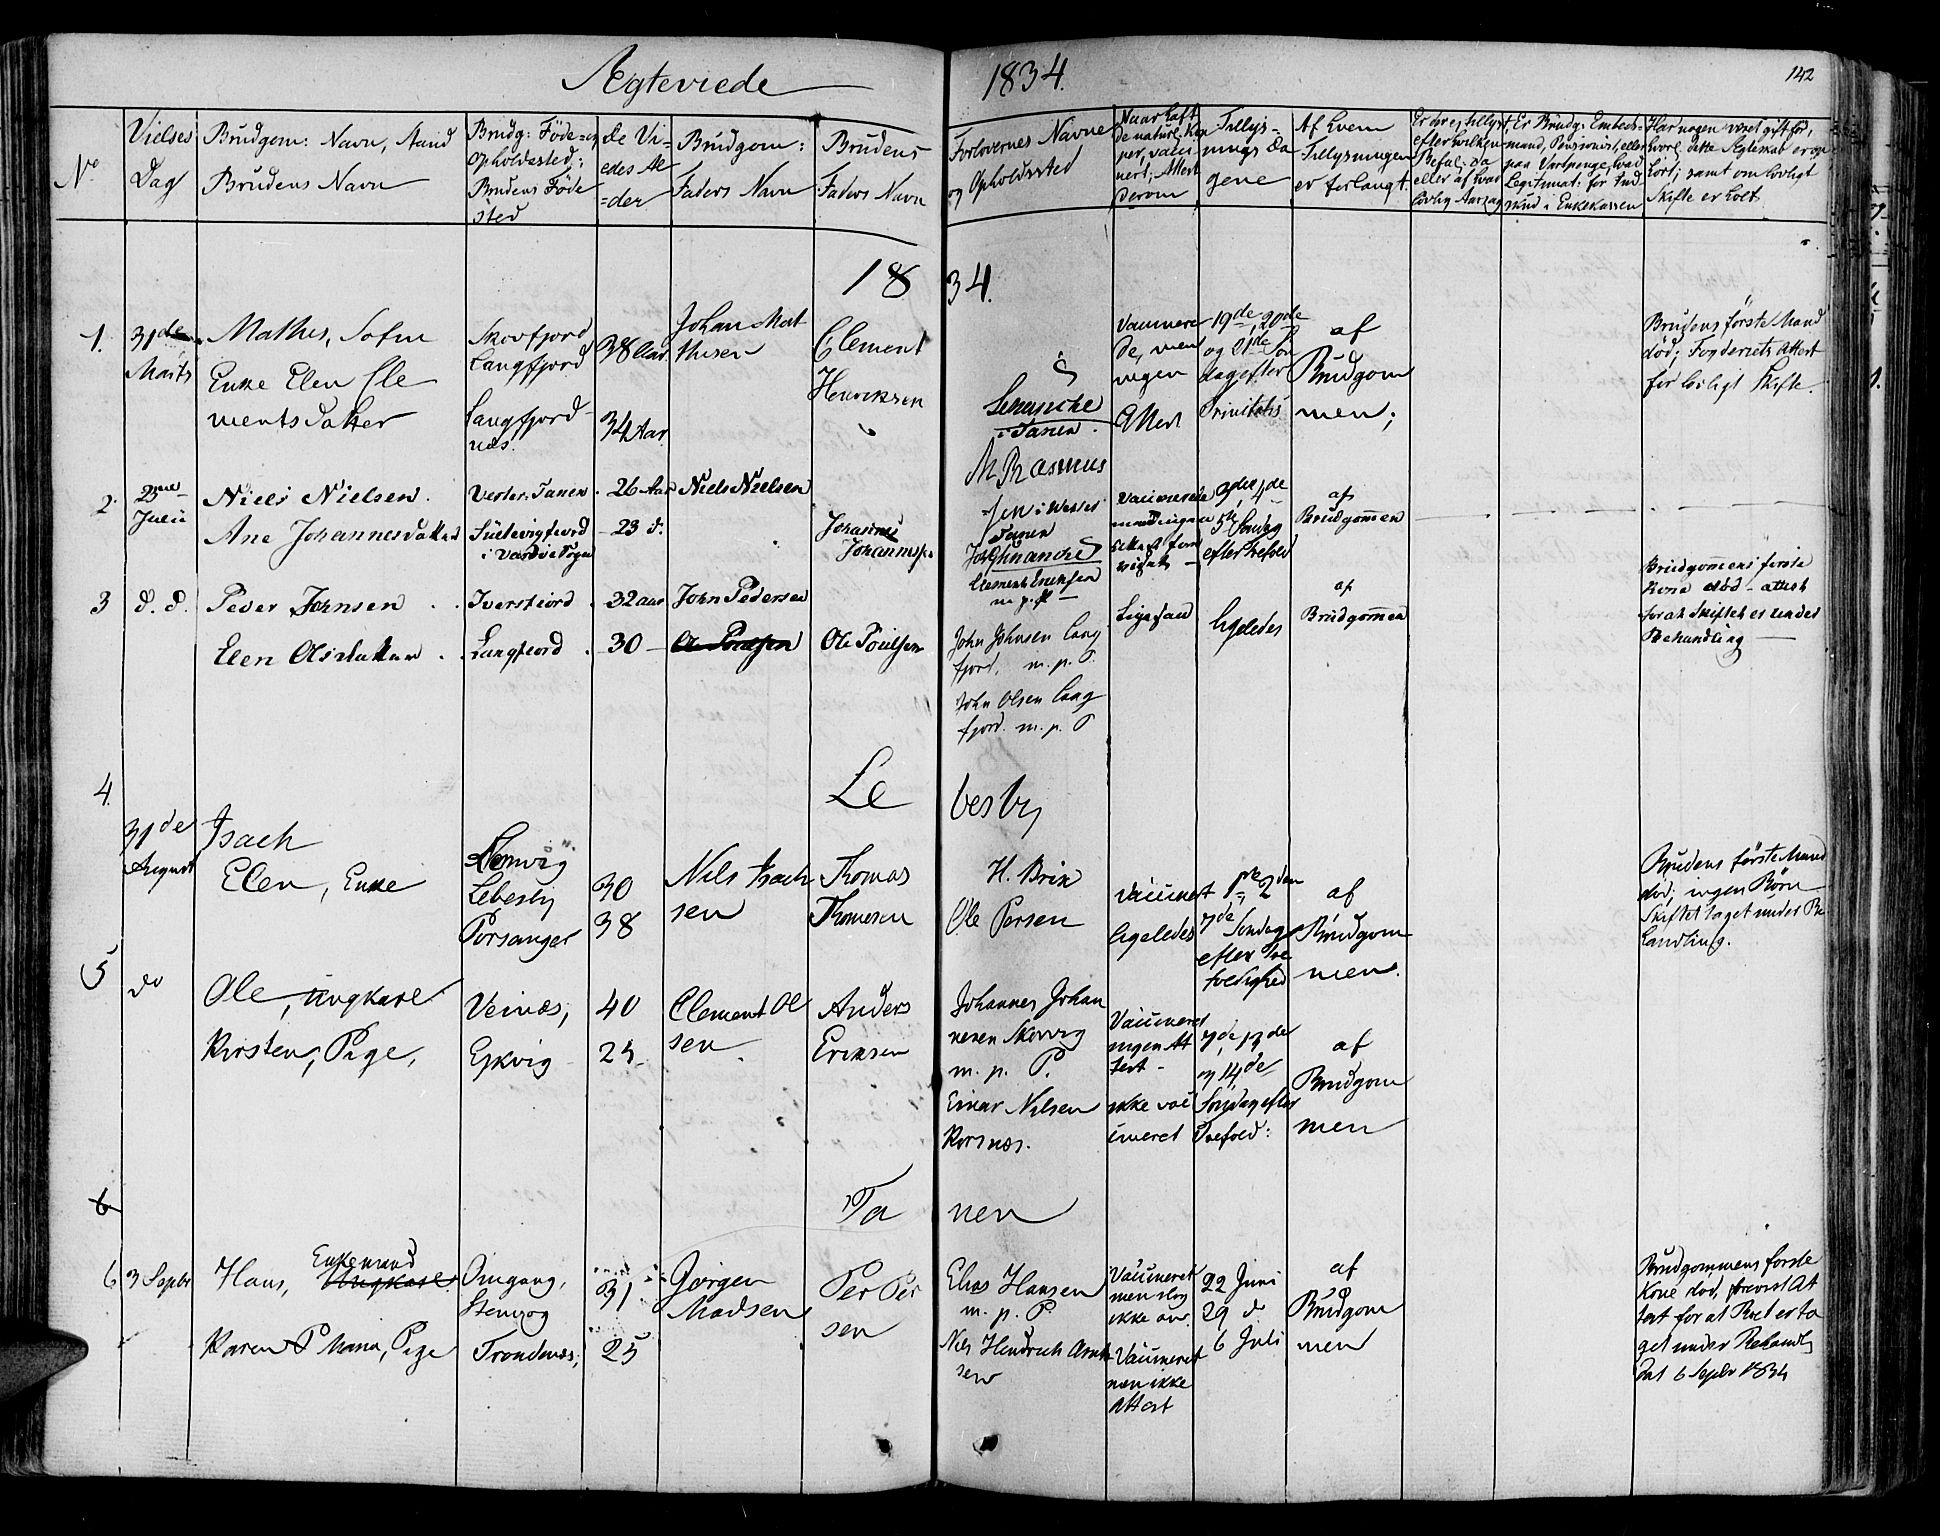 Ægteviede
1834.
142
No
Vielses
Dag
Brudgom: Navn, Stand
Brudens Navn
Brudg: Føde= og
Opholdssted;
Brudens Føde
sted
De Vi=
edes Al
=der
Brudgom:
Faders Navn
Brudens
Faders Navn
Forlovernes Navne
og Opholdssted
Naar haft
de naturl. Kop
per, vacci
nert; Attest
derom
Tillys=
nings Da
gene
Af hvem
Tillysningen
er forlangt.
Er Brudg: Embeds-
mand, Pensionist, eller
paa Vartpenge, hvad
Legitimat: for Ind
skud i Enkekassen
Har nogen været gift før,
hvorl. dette Ægteskab er op
hørt; samt om lovligt
Skifte er holt
1834.
1.
31de
Marts
Mathis, Søfin
Enke Elen Cle
mentsdatter
Skovfjord
Langfjord
Langfjord
næs.
38 Aar
34 Aar
Johan Mat
thisen
Clement
Henriksen
Schanche
i Tanen.
Vaccinere
de, men
ingen
Attest
19de, 20de
og 21de Søn
dag efter
Trinitatis
af
Brudgom
men;
Brudens første Mand
død; Fogderiets Attest
for lovligt Skifte.
2.
Julii
Niels Nielsen.
Ane Johannesdatter
Vester-Tanen
i Vardøe Sogn
26 Aar
23 d.
Niels Nielsen
Johannes
Johannesen
M Rasmus
Tanen
Schanche
m. p. P
Vaccinerede
3die, 4de
5te Søndag
efter Trefold
af
Brudgommen
3
d. d.
Peder Johnsen
Elen Olsdatter
Iversfiord
Langfiord
32 aar
30
John Pedersen
Ole Poulsen
Ole Poulsen
John Johnsen Lang
fjord, m. p. P.
John Olsen Lang
fjord. m. p. P
Ligesaa
ligeledes
af
Brudgommen
Brudgommens første
Kone død - attest
for at Skiftet er under
Behandling
Lebesby
4.
31de
August
Isach
Elen, Enke
Lebesby
Porsanger
30
38
Nils Isach
sen
Thomas
Thomesen
H. Brix
Ole Persen
Vaccinert
ligeledes
7de Søndag
efter Tre
foldighed
af
Brudgom
men.
Brudens første Mand
død; ingen Børn
Skiftet taget under Be
handling.
5
do
Ole, ungkarl
Kirsten, Pige,
Veinæs,
Eykvig
40
25
Clement Ol
sen
Anders
Eriksen
Johannes Johan
nesen
m. p. P.
Einar Nilsen
Korsnæs.
Vaccineret
ingen At
test -
ikke vac
cineret
7de, 13de
og 14de
Søndag efter
Trefold:
af
Brudgom
men
Tanen
6
6
3 Septbr
Enkemand
Hans, Ungkarl.
Karen P Maria, Pige
Omgang,
Trondenæs,
31
25
Jørgen
Madsen
Per Per
sen
Elias Hansen
m. p. P
Nils Hendrich
sen
Vaccineret
men dog
ikke
Vaccineret
men ikke
Attest
22 Juni
29 d
6 Juli
af
Brudgom
men
Brudgommens første
Kone død, At
test for at Boet er ta
get under Behandl
Dat 6 Septbr 1834